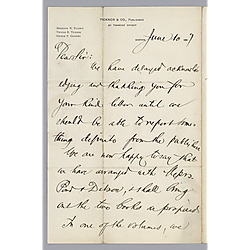 TICKNOR & CO., PUBLISHERS
June 10 - 7
Dear Sir: We have delayed acknowl
edging and thanking you for
your kind letter until we
should be able to report some
thing definite from the publishers
We are now happy to say that
we have arranged with Messrs
& shall bring
out the two books as proposed.
In one of the volumes, we